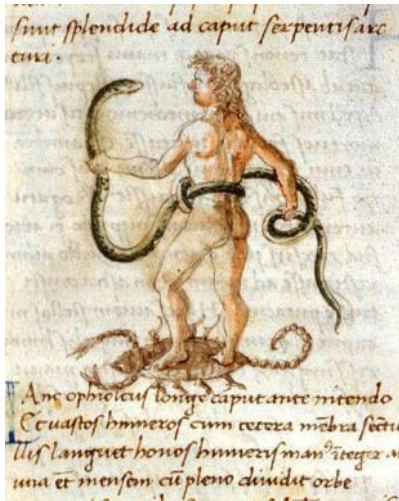 sunt splendide ad caput serpentis arc
turi .
Anc ophiolcus longe caput ante nitendo
Et uastos humeros cum cetera mēbra
llis languet honos humeris manꝰ īteger
una et mensem cū pleno diuidit orbe